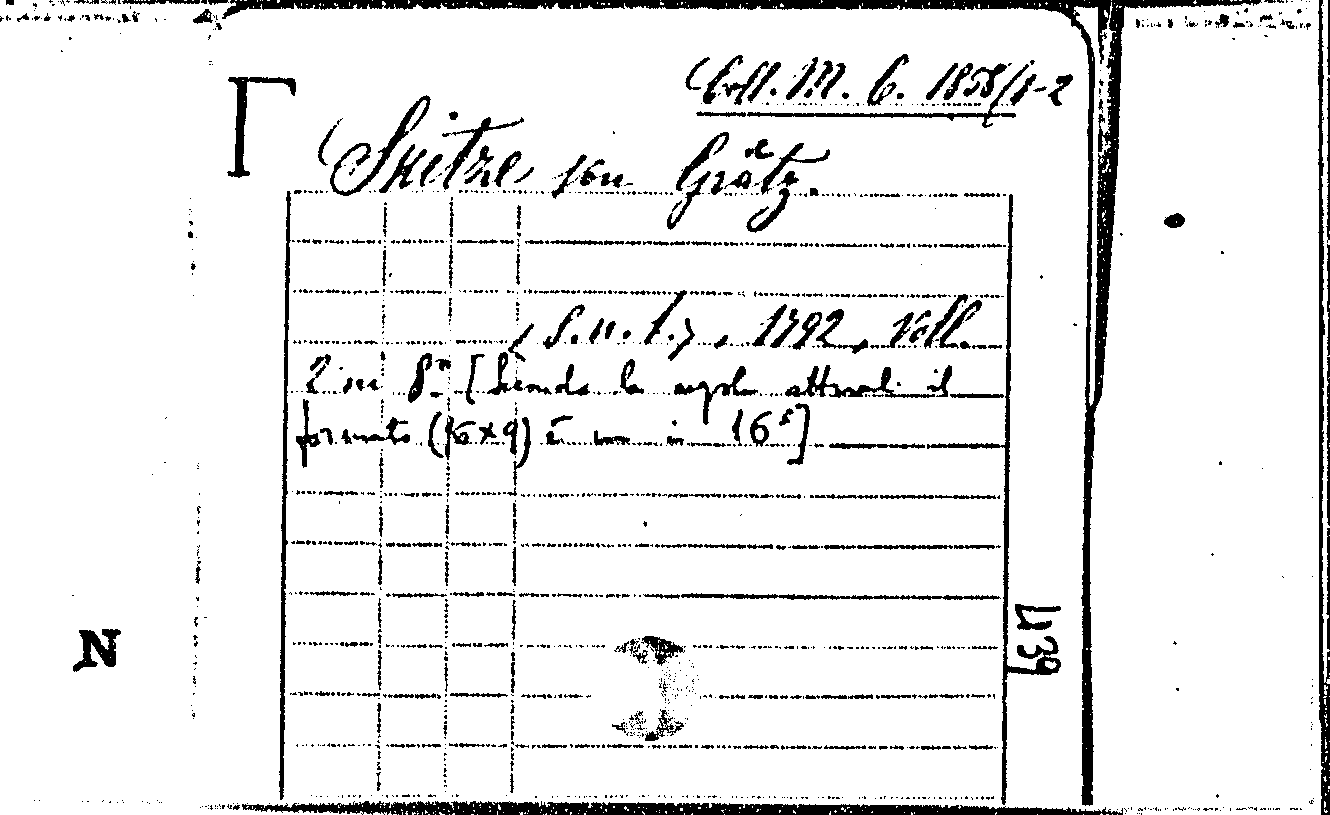 Coll. M. C. 1858/1-2
Skitze von Grätz.
(S. n. t.), 1792, Voll.
2 in 8° [Secondo la regola attuale il
formato (16x9) è un in 16°]
1139
N